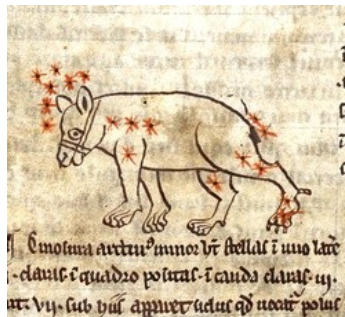 Cinosura arctur⁹ minor ht̄ stellas ī uno lat̄e
claras ī quadro positas. ī cauda claras .iii.
vii. sub hiis apparet sidus qđ uocat̄ polus